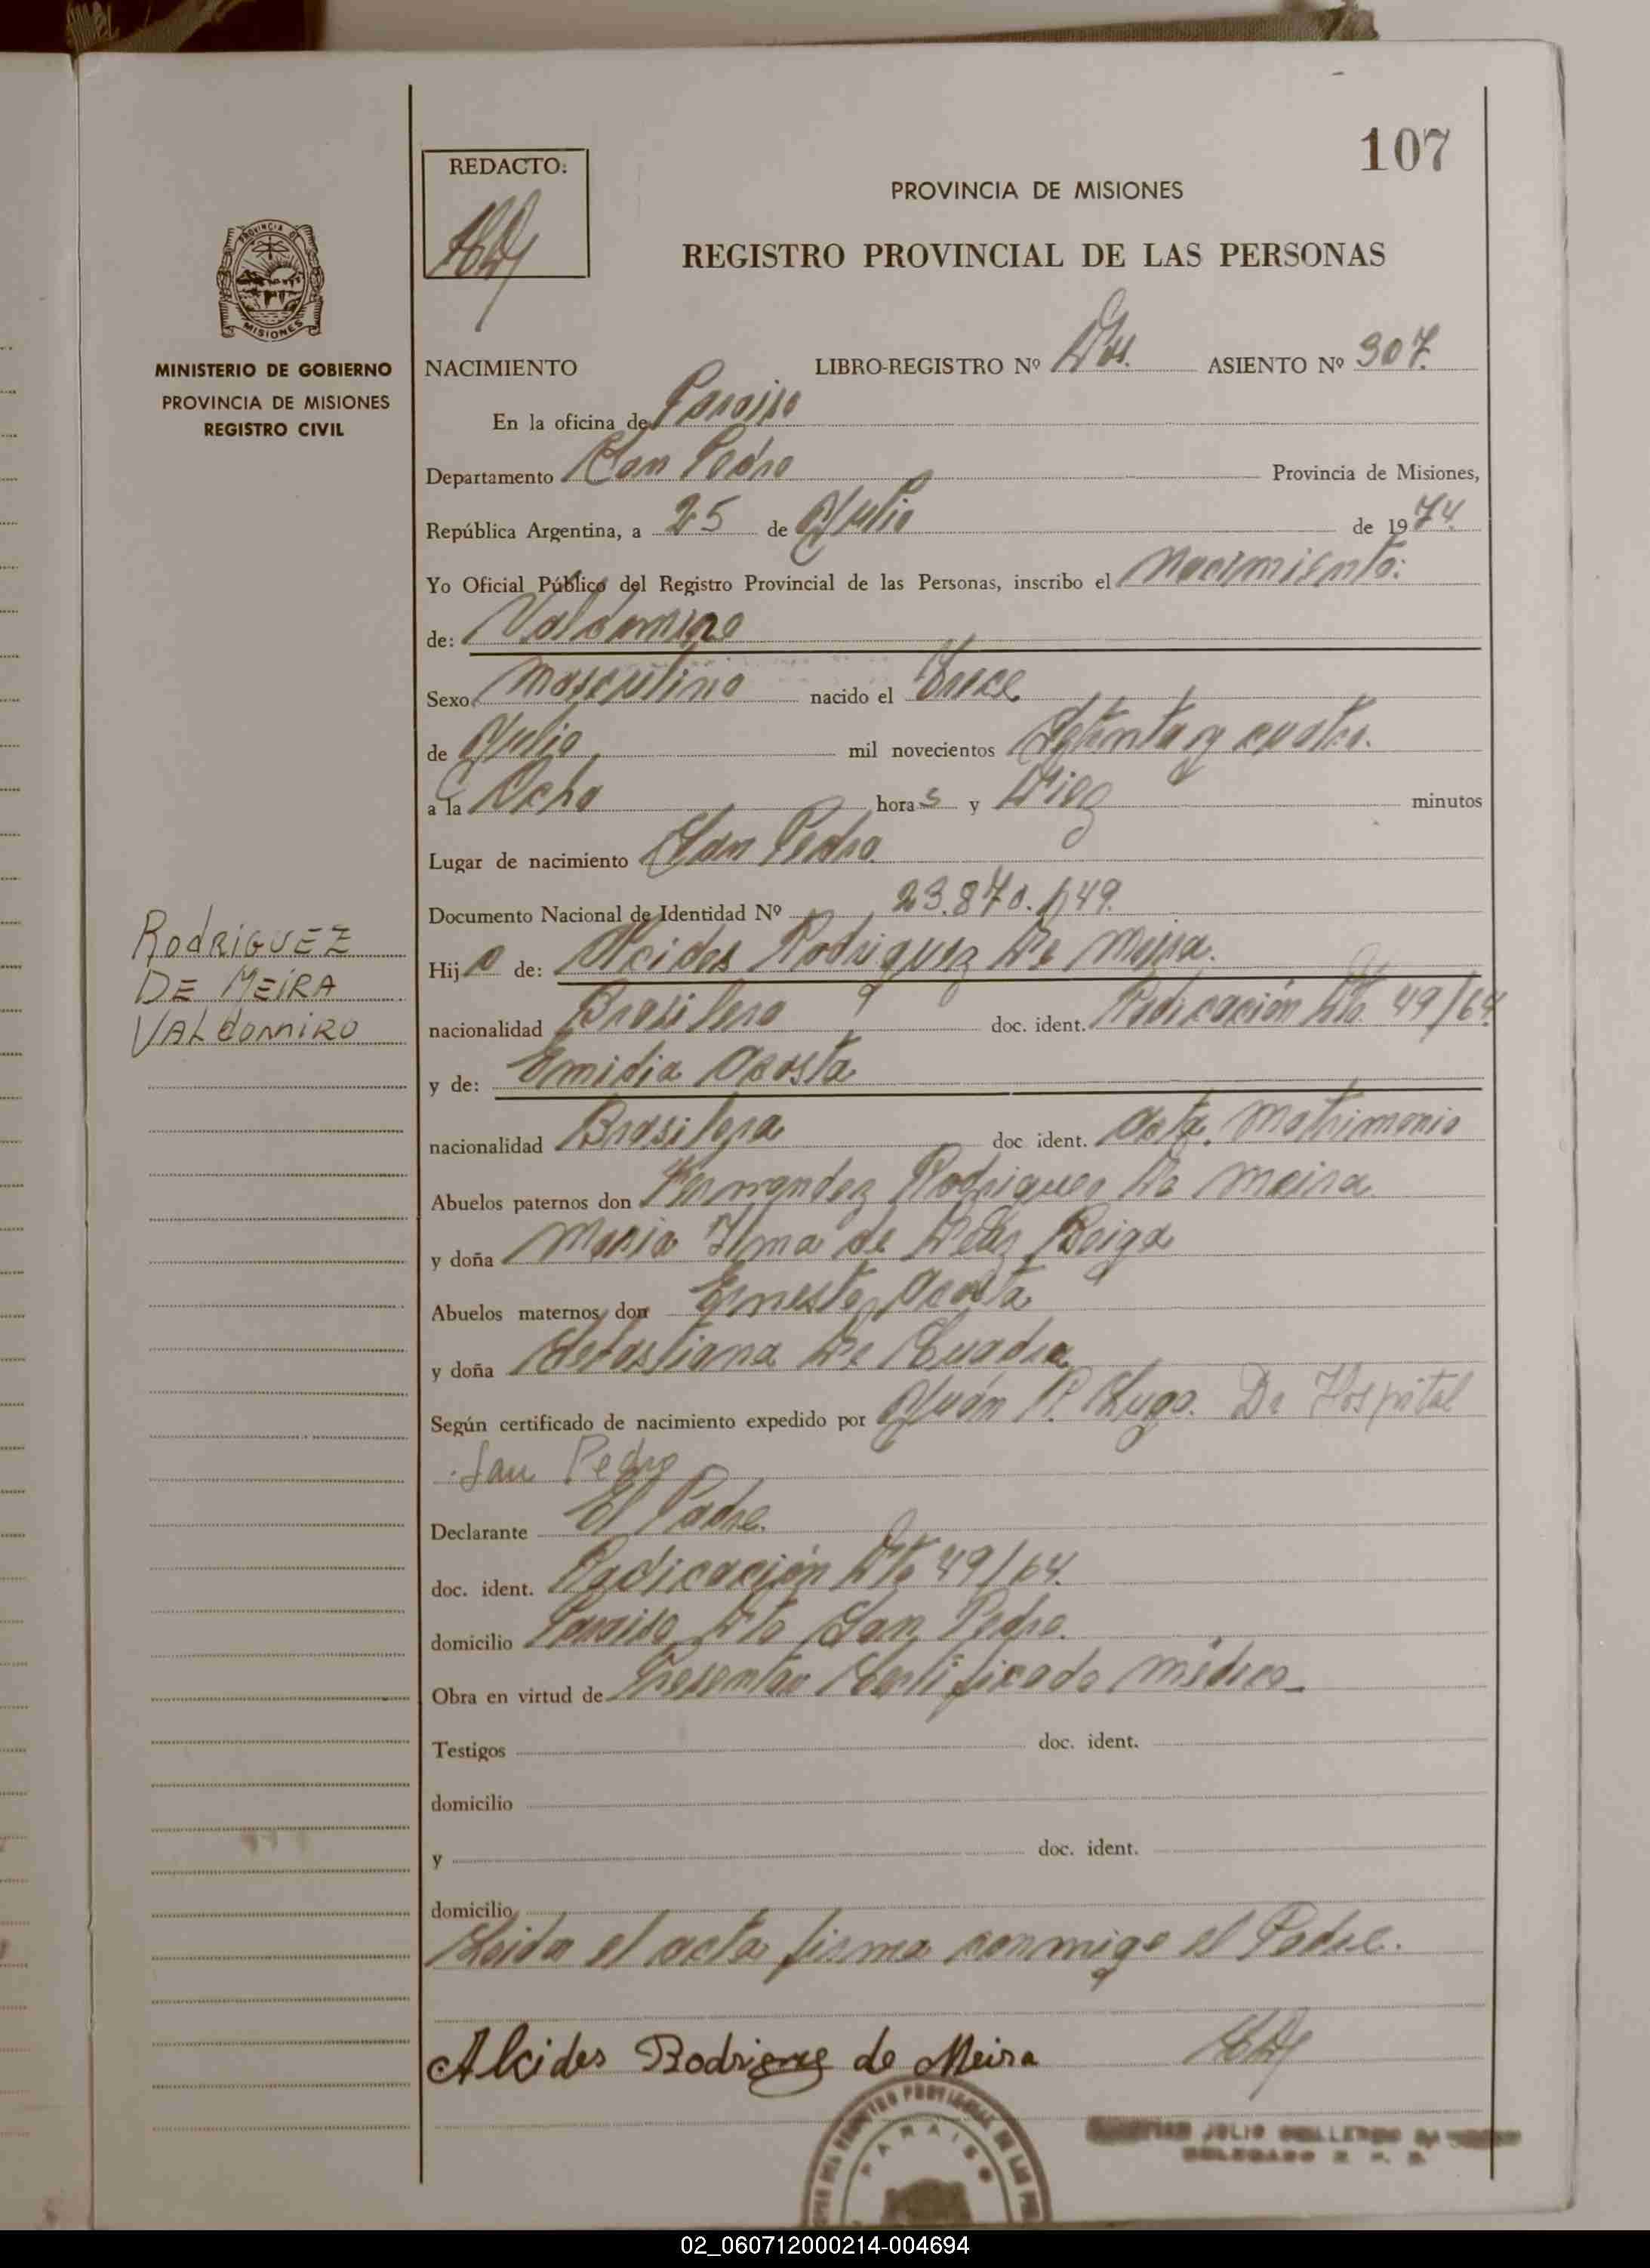 107
REDACTO:
PROVINCIA DE MISIONES
REGISTRO PROVINCIAL DE LAS PERSONAS
PROVINCIA DE
MISIONES
MINISTERIO DE GOBIERNO
PROVINCIA DE MISIONES
REGISTRO CIVIL
NACIMIENTO LIBRO-REGISTRO Nº Dos. ASIENTO Nº 307.
En la oficina de Paraiso
Departamento San Pedro Provincia de Misiones,
República Argentina, a 25 de Julio de 1974
Yo Oficial Público del Registro Provincial de las Personas, inscribo el Nacimiento:
de: Valdomiro
Sexo Masculino nacido el
de Julio mil novecientos Setenta y cuatro.
a la Ocho horas y Diez minutos
Lugar de nacimiento San Pedro
Documento Nacional de Identidad Nº
RODRIGUEZ
DE MEIRA
VALDOMIRO
Hijo de: Alcides Rodriguez De Meira.
nacionalidad Brasilero doc. ident. Radicación Dto. 49/64.
y de: Emidia Acosta
nacionalidad Brasilera doc. ident. Acta. Matrimonio
Abuelos paternos don Rodriguez De Meira
y doña Maria de
Abuelos maternos don Ernesto Acosta
y doña Sebastiana De
Según certificado de nacimiento expedido por Juán P. Lugo. Dr Hospital
San Pedro
Declarante El Padre.
doc. ident. Radicación Dto 49/64.
domicilio Paraiso Dto San Pedro.
Obra en virtud de Presentar Certificado médico
Testigos doc. ident.
domicilio
y doc. ident.
domicilio
Leida el acta firma conmigo el Padre.
Alcides Rodriguez de Meira
PARAISO
JULIO
DELEGADO R. P. P.
02_060712000214-004694